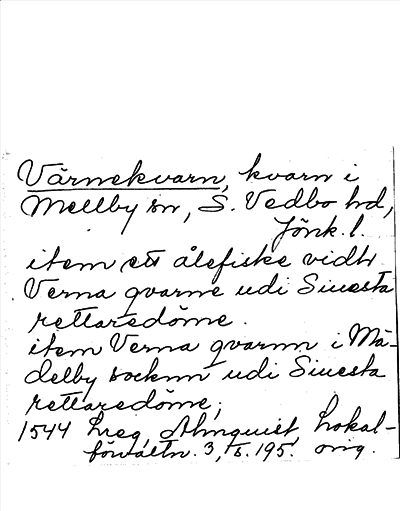 Värnekvarn, kvarn i
Mellby sn, S. Vedbo hd,
Jönk. l.
item ett ålefiske vidh
Verna qvarne udi Siuesta
rettaredöme.
item Verna qvarnn i Mä-
delby socknn udi Siuesta
rettaredöme;
1544 Almquist, Lokal-
förvaltn. 3, s. 195. orig.